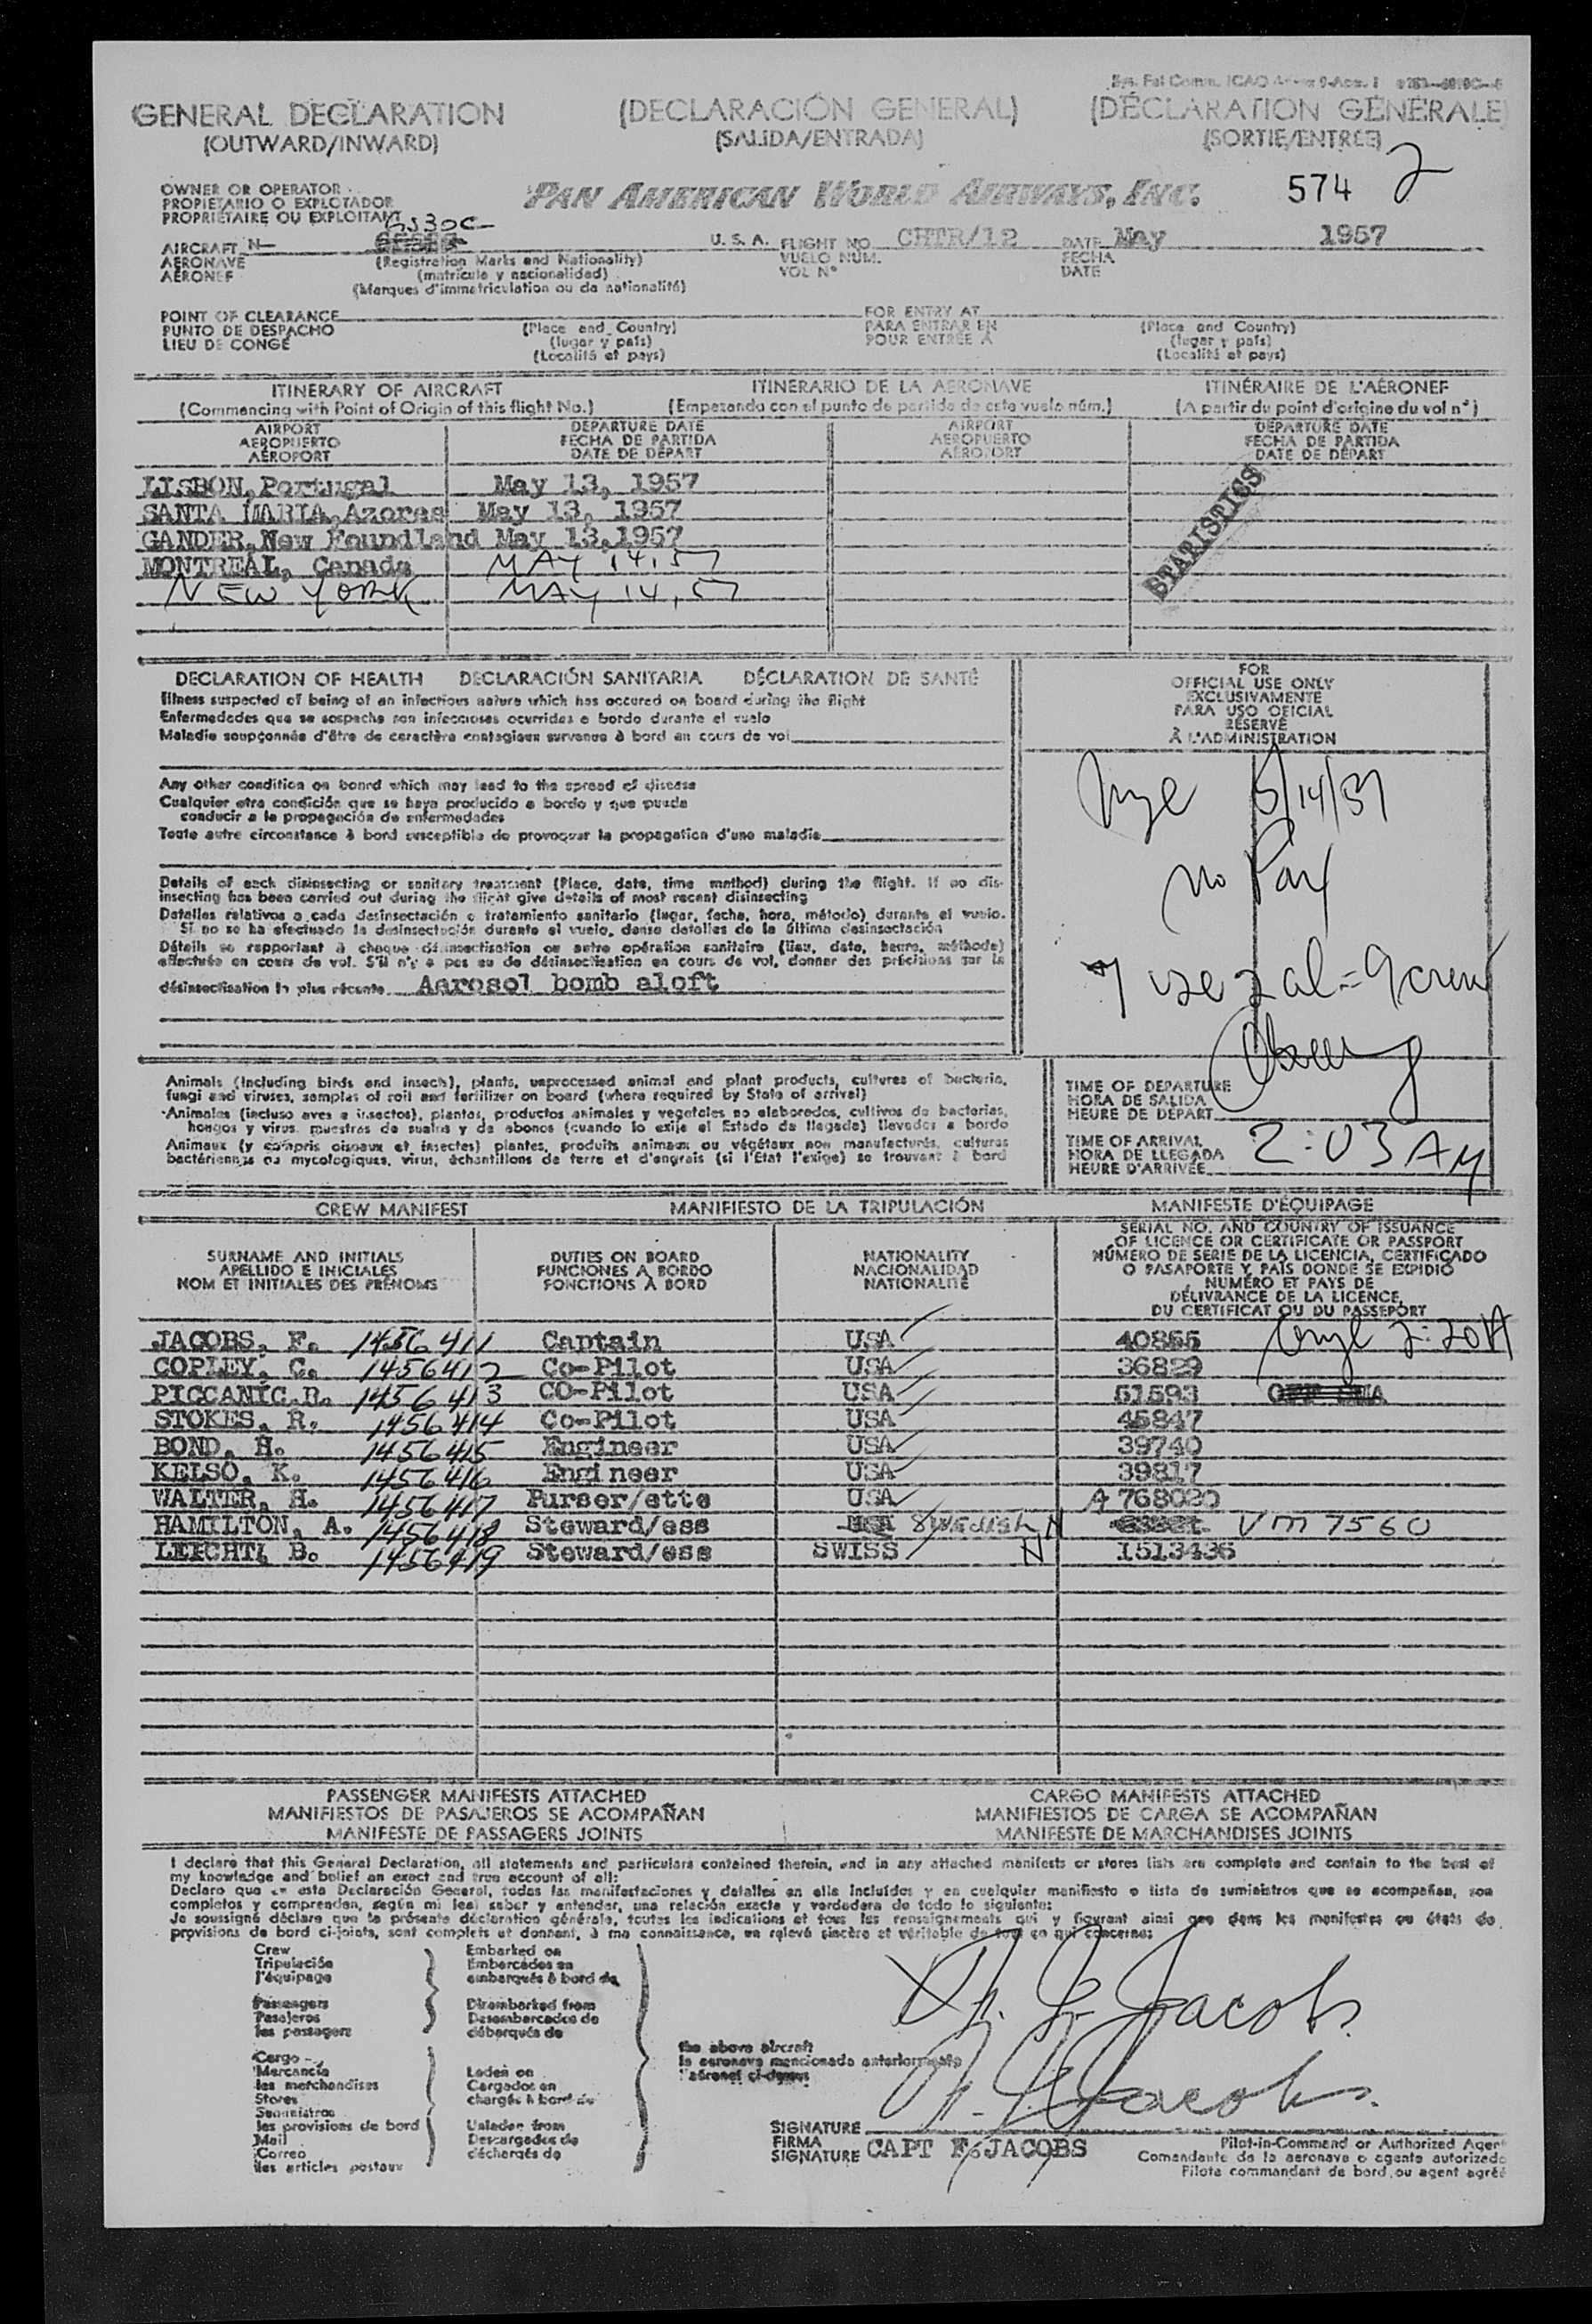 GENERAL DECLARATION (DECLARACIÓN GENERAL) (DÉCLARATION GÉNÉRALE)
(OUTWARD/INWARD) (SALIDA/ENTRADA) (SORTIE/ENTRÉE)
OWNER OR OPERATOR
PROPIETARIO O EXPLOTADOR
PROPRIÉTAIRE OU EXPLOITANT
PAN AMERICAN WORLD AIRWAYS, INC. 574 2
AIRCRAFT N- U. S. A. FLIGHT NO. CHTR/12 DATE May 1957
AERONAVE (Registration Marks and Nationality) VUELO NÚM. FECHA
AÉRONEF (matrícula y nacionalidad) VOL Nº DATE
(Marques d'immatriculation ou de nationalité)
POINT OF CLEARANCE FOR ENTRY AT
PUNTO DE DESPACHO (Place and Country) PARA ENTRAR EN (Place and Country)
LIEU DE CONGÉ (lugar y país) POUR ENTRÉE À (lugar y país)
(Localité et pays) (Localité et pays)
ITINERARY OF AIRCRAFT ITINERARIO DE LA AERONAVE ITINÉRAIRE DE L'AÉRONEF
(Commencing with Point of Origin of this flight No.) (Empezando con el punto de partida de este vuelo núm.) (A partir du point d'origine du vol nº)
AIRPORT DEPARTURE DATE AIRPORT DEPARTURE DATE
AEROPUERTO FECHA DE PARTIDA AEROPUERTO FECHA DE PARTIDA
AÉROPORT DATE DE DÉPART AÉROPORT DATE DE DÉPART
LISBON, Portugal May 13, 1957
SANTA MARIA, Azores May 13, 1957
GANDER, New Foundland May 13, 1957
MONTREAL, Canada MAY 14, 57
NEW YORK MAY 14, 57
STATISTICS
DECLARATION OF HEALTH DECLARACIÓN SANITARIA DÉCLARATION DE SANTÉ
Illness suspected of being of an infectious nature which has occured on board during the flight
Enfermedades que se sospecha son infecciosas ocurridas a bordo durante el vuelo
Maladie soupçonnée d'être de caractère contagieux survenue à bord au cours de vol
Any other condition on board which may lead to the spread of disease
Cualquier otra condición que se haya producido a bordo y que pueda
conducir a la propagación de enfermedades
Toute autre circonstance à bord susceptible de provoquer la propagation d'une maladie
Details of each disinsecting or sanitary treatment (Place, date, time method) during the flight. If no dis-
insecting has been carried out during the flight give details of most recent disinsecting
Detalles relativos a cada desinsectación o tratamiento sanitario (lugar, fecha, hora, método) durante el vuelo.
Si no se ha efectuado la desinsectación durante el vuelo, dense detalles de la última desinsectación
Détails se rapportant à chaque désinsectisation ou autre opération sanitaire (lieu, date, heure, méthode)
effectuée en cours de vol. S'il n'y a pas eu de désinsectisation en cours de vol, donner des précisions sur la
désinsectisation la plus récente Aerosol bomb aloft
FOR
OFFICIAL USE ONLY
EXCLUSIVAMENTE
PARA USO OFICIAL
RÉSERVÉ
À L'ADMINISTRATION
5/14/57
no Pax
7 use 2 al = 9 crew
Animals (including birds and insects), plants, unprocessed animal and plant products, cultures of bacteria,
fungi and viruses, samples of soil and fertilizer on board (where required by State of arrival)
Animales (incluso aves e insectos), plantas, productos animales y vegetales no elaborados, cultivos de bacterias,
hongos y virus, muestras de suelos y de abonos (cuando lo exije el Estado de llegada) llevados a bordo
Animaux (y compris oiseaux et insectes) plantes, produits animaux ou végétaux non manufacturés, cultures
bactériennes ou mycologiques, virus, échantillons de terre et d'engrais (si l'État l'exige) se trouvant à bord
TIME OF DEPARTURE
HORA DE SALIDA
HEURE DE DÉPART
TIME OF ARRIVAL
HORA DE LLEGADA
HEURE D'ARRIVÉE 2:03 AM
CREW MANIFEST MANIFIESTO DE LA TRIPULACIÓN MANIFESTE D'ÉQUIPAGE
SURNAME AND INITIALS DUTIES ON BOARD NATIONALITY SERIAL NO. AND COUNTRY OF ISSUANCE
APELLIDO E INICIALES FUNCIONES A BORDO NACIONALIDAD OF LICENCE OR CERTIFICATE OR PASSPORT
NOM ET INITIALES DES PRÉNOMS FONCTIONS À BORD NATIONALITÉ NÚMERO DE SERIE DE LA LICENCIA, CERTIFICADO
O PASAPORTE Y PAÍS DONDE SE EXPIDIÓ
NUMÉRO ET PAYS DE
DÉLIVRANCE DE LA LICENCE,
DU CERTIFICAT OU DU PASSEPORT
JACOBS, F. 1456411 Captain USA 40855 2:20A
COPLEY, C. 1456412 Co-Pilot USA 36829
PICCANIC, R. 1456413 CO-Pilot USA 51593
STOKES, R. 1456414 Co-Pilot USA 45847
BOND, H. 1456415 Engineer USA 39740
KELSO, K. 1456416 Engineer USA 39817
WALTER, H. 1456417 Purser/ette USA A 768020
HAMILTON, A. 1456418 Steward/ess USA Swedish N VM 7560
LEICHTI, B. 1456419 Steward/ess SWISS N 1513436
PASSENGER MANIFESTS ATTACHED CARGO MANIFESTS ATTACHED
MANIFIESTOS DE PASAJEROS SE ACOMPAÑAN MANIFIESTOS DE CARGA SE ACOMPAÑAN
MANIFESTE DE PASSAGERS JOINTS MANIFESTE DE MARCHANDISES JOINTS
I declare that this General Declaration, all statements and particulars contained therein, and in any attached manifests or stores lists are complete and contain to the best of
my knowledge and belief an exact and true account of all:
Declaro que en esta Declaración General, todas las manifestaciones y detalles en ella incluídos y en cualquier manifiesto o lista de suministros que se acompañan, son
completos y comprenden, según mi leal saber y entender, una relación exacta y verdadera de todo lo siguiente:
Je soussigné déclare que la présente déclaration générale, toutes les indications et tous les renseignements qui y figurant ainsi que dans les manifestes ou états de
provisions de bord ci-joints, sont complets et donnent, à ma connaissance, un relevé sincère et véritable de tout ce qui concerne:
Crew Embarked on
Tripulación Embarcados en
l'équipage embarqués à bord de
Passengers Disembarked from
Pasajeros Desembarcados de
les passagers débarqués de
Cargo
Mercancía Laden on
les marchandises Cargados en
Stores chargés à bord de
Suministros
les provisions de bord Unladen from
Mail Descargados de
Correo déchargés de
les articles postaux
the above aircraft
la aeronave mencionada anteriormente
l'aéronef ci-dessus
X F. G. Jacobs
F. G. Jacobs
SIGNATURE
FIRMA
SIGNATURE CAPT F. JACOBS
Pilot-in-Command or Authorized Agent
Comandante de la aeronave o agente autorizado
Pilote commandant de bord, ou agent agréé